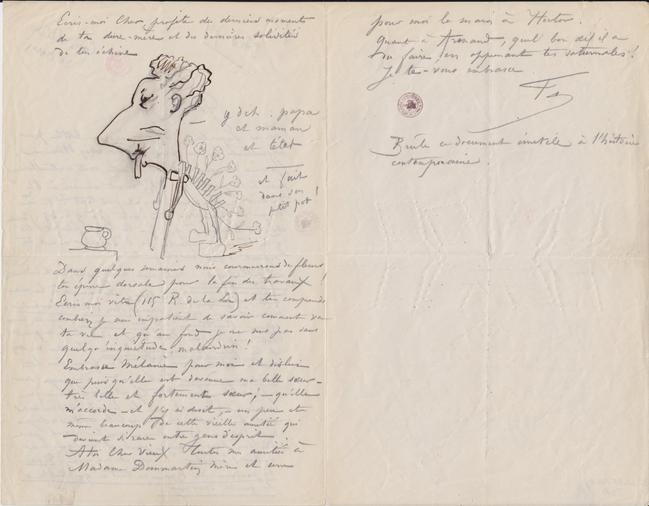 Ecris-moi Cher profite des derniers moments
de ta dure-mère et des dernières solidités
de ton échine
y dch. papa
et maman
et l'état
et fait
dans son
ptit pot!
Dans quelques semaines nous couronnerons de fleurs
ton épine dorsale pour la fin des travaux!
Ecris moi vite (115 R. de la          ) et tu comprends
combien je suis impatient de savoir comment va
ta vie et qu'au fond je ne suis pas sans
quelqu'inquiétude, malandrin!
Embrasse Mélanie pour moi et dis lui
que puis qu'elle est devenue ma belle sœur -
très belle et fortement sœur, - qu'elle
m'accorde - et j'y ai droit, - un peu et
même beaucoup de cette vieille amitié qui
devient si rare entre gens d'esprit
A toi Cher Vieux. Toutes mes amitiés à
Madame Dommartin mère et serre
pour moi la main à Hector.
Quant à Armand, quel bon dîf il a
du faire en apprenant tes saturnales!
Je te-vous embrasse
Brûle ce document inutile à l'histoire
contemporaine.